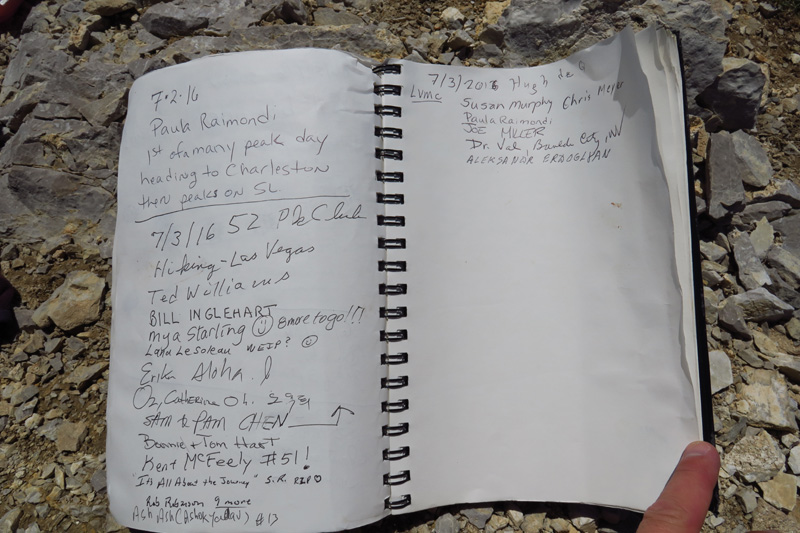 7·2·16
Paula Raimondi
1st of a many peak day
heading to Charleston
then peaks on SL
7/3/16 52 Pk Club
Hiking-Las Vegas
Ted Williams
BILL INGLEHART
mya Starling ☺ 8 more to go!!!
Lana LeSoleau WEIP? ☺
Erika Aloha!
Oz, Catherina Oh.
SAM & PAM CHEN
Bonnie + Tom Hart
Kent McFeely #51!
"It's All About the Journey" S.R. RIP ♡
Rob Robinson 9 more
Ash, Ash (Ashok Yadav) #13
7/3/2016 Hugh de Q
LVMC Susan Murphy Chris Meyer
Paula Raimondi
JOE MILLER
Dr. Val, Boulder City, NV
ALEKSANDR ERDOGLYAN